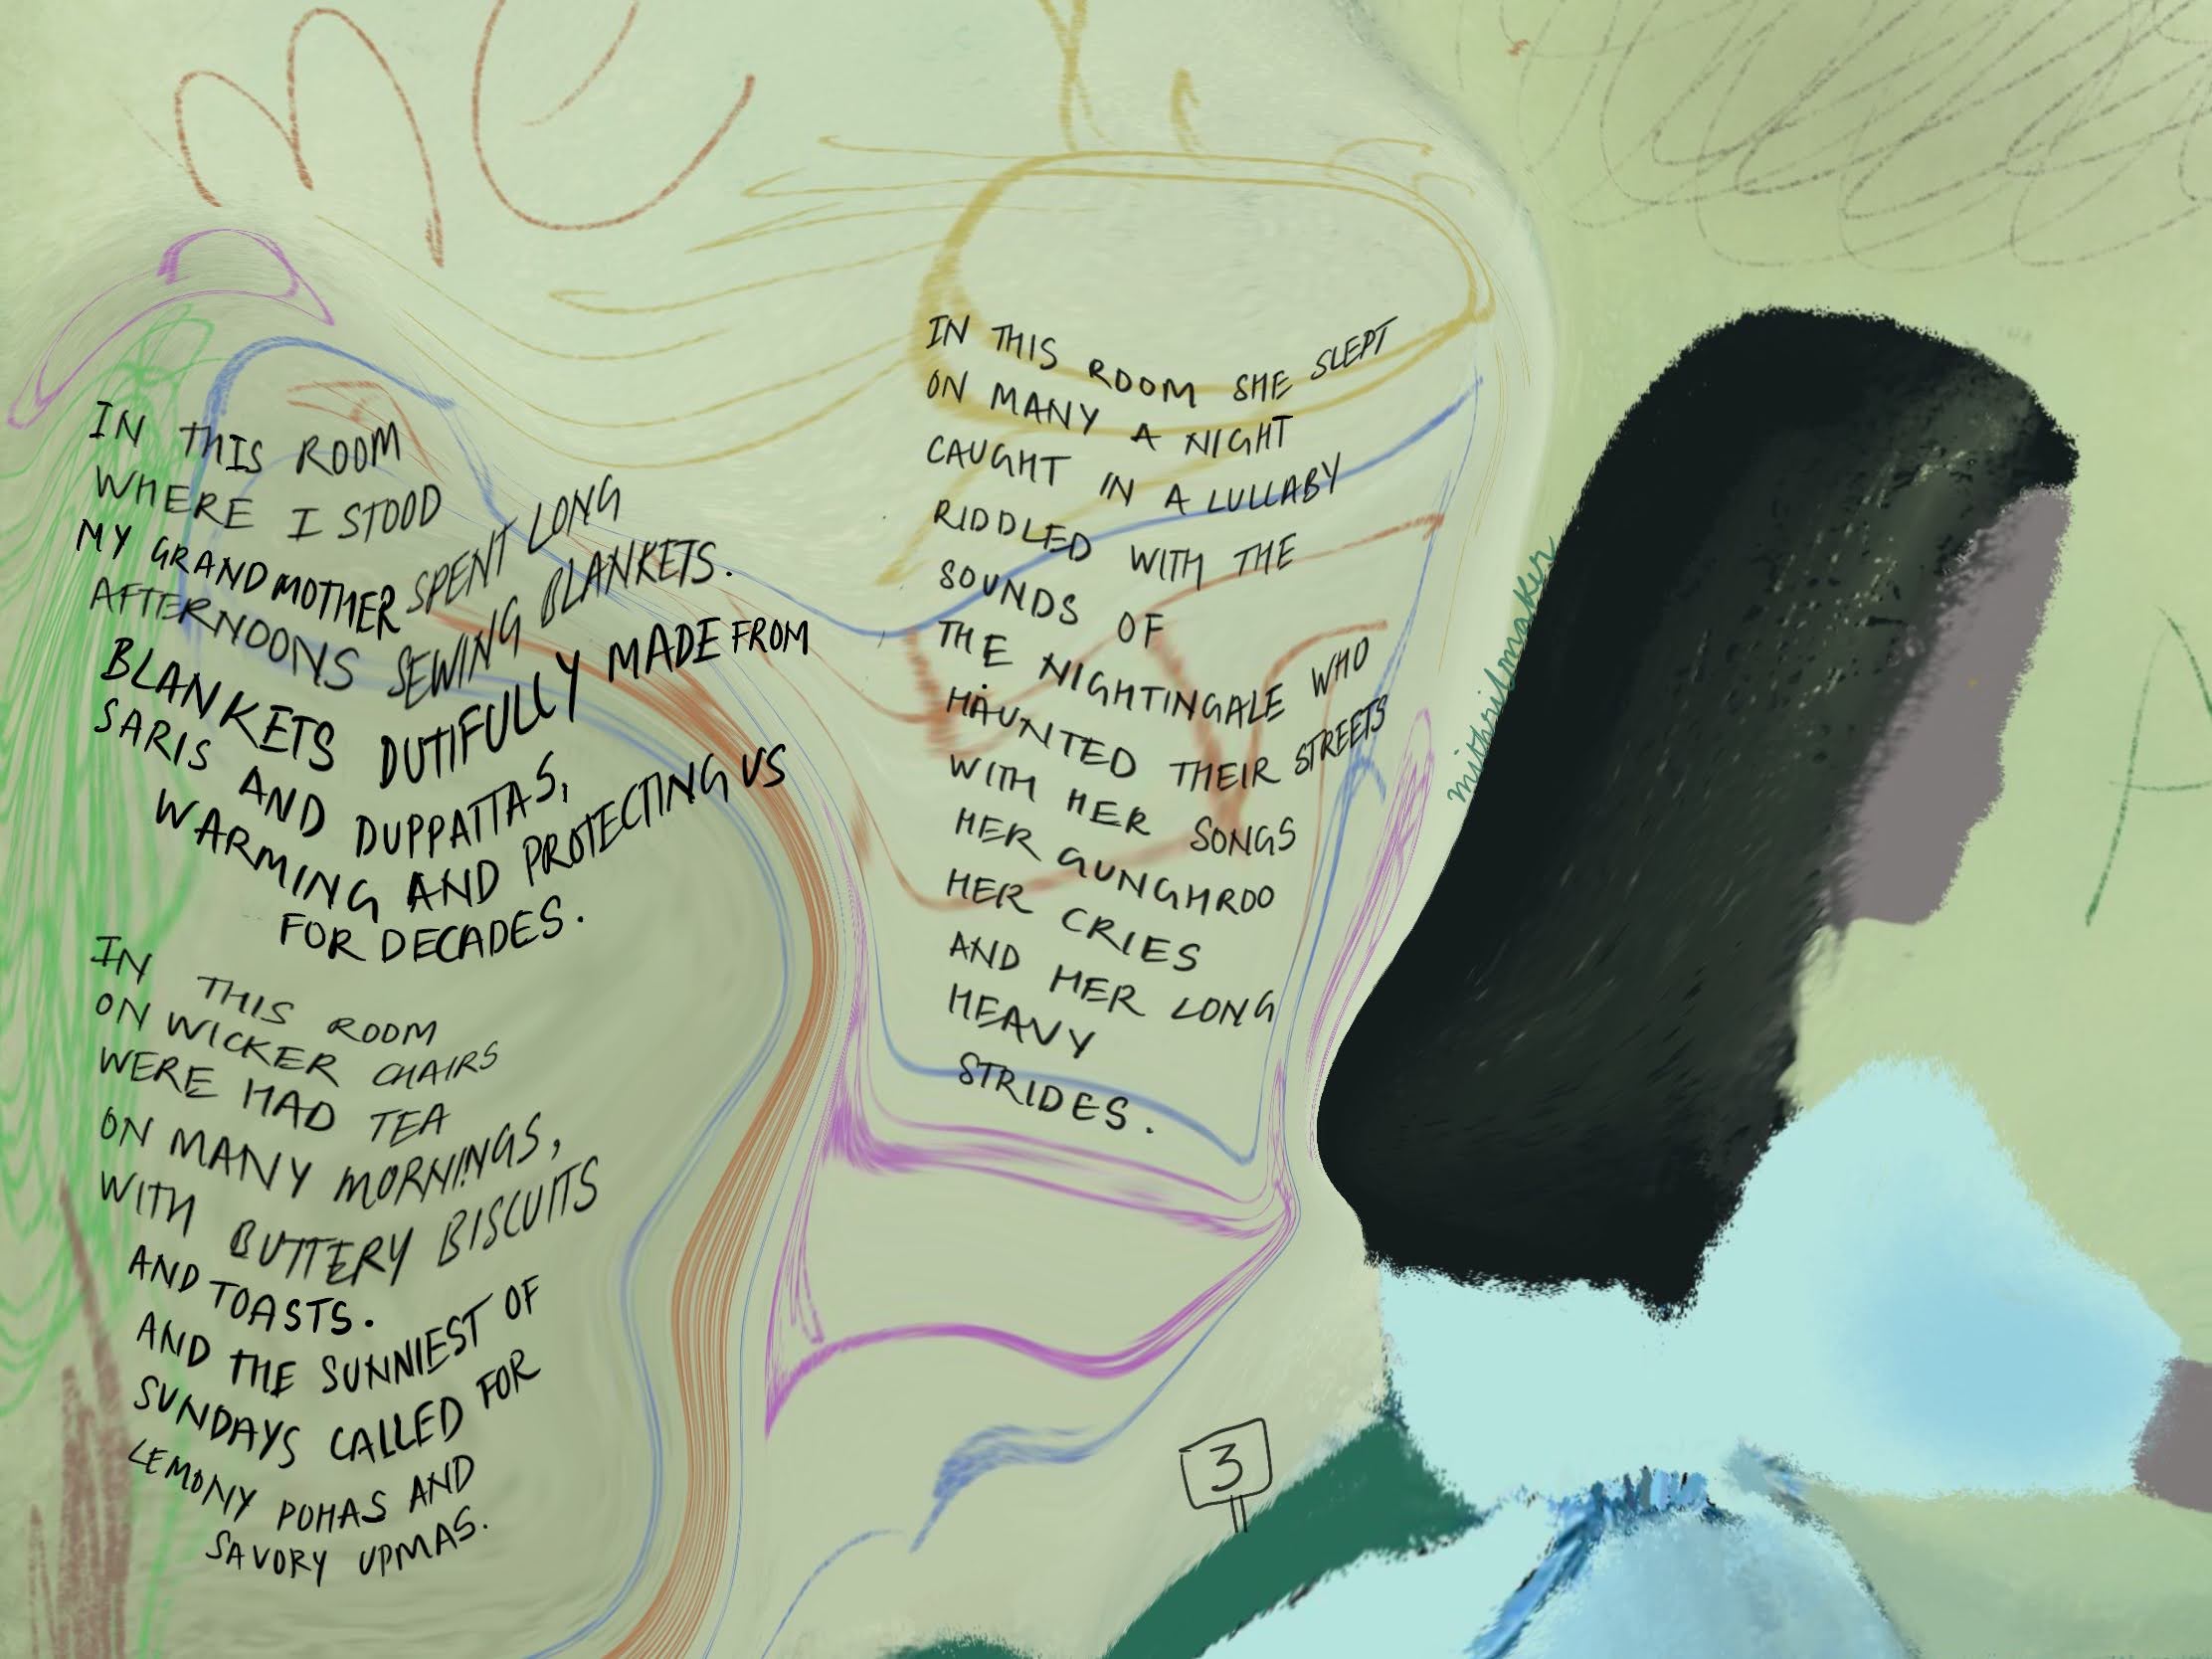 me
IN THIS ROOM
WHERE I STOOD
MY GRANDMOTHER SPENT LONG
AFTERNOONS SEWING BLANKETS.
BLANKETS DUTIFULLY MADE FROM
SARIS AND DUPPATTAS,
WARMING AND PROTECTING US
FOR DECADES.
IN THIS ROOM
ON WICKER CHAIRS
WERE HAD TEA
ON MANY MORNINGS,
WITH BUTTERY BISCUITS
AND TOASTS.
AND THE SUNNIEST OF
SUNDAYS CALLED FOR
LEMONY POHAS AND
SAVORY UPMAS.
IN THIS ROOM SHE SLEPT
ON MANY A NIGHT
CAUGHT IN A LULLABY
RIDDLED WITH THE
SOUNDS OF
THE NIGHTINGALE WHO
HAUNTED THEIR STREETS
WITH HER SONGS
HER GUNGHROO
HER CRIES
AND HER LONG
HEAVY
STRIDES.
mithrilmaker
3
A